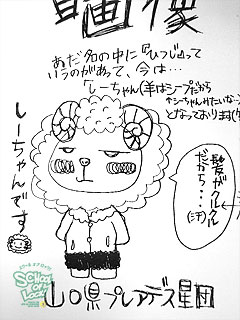 画像
あだ名の中に『ひつじ』って
いうのがあって、今は…
「しーちゃん(羊はシープだから
↑シーちゃんみたいな…)
となっております(笑
しーちゃんです
髪がクルクル
だから…(汗)
SCHOOL OF LOCK!
山口県プレアデス星団